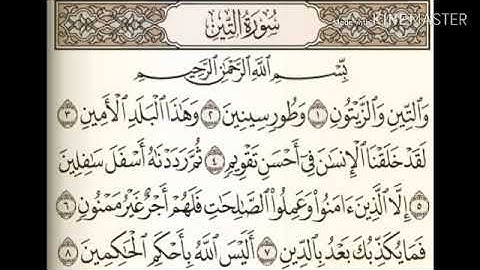 Made with KINEMASTER
سُورَةُ التِّينِ
بِسْمِ اللَّهِ الرَّحْمَٰنِ الرَّحِيمِ
وَالتِّينِ وَالزَّيْتُونِ ١ وَطُورِ سِينِينَ ٢ وَهَٰذَا الْبَلَدِ الْأَمِينِ ٣
لَقَدْ خَلَقْنَا الْإِنسَانَ فِي أَحْسَنِ تَقْوِيمٍ ٤ ثُمَّ رَدَدْنَاهُ أَسْفَلَ سَافِلِينَ
٥ إِلَّا الَّذِينَ ءَامَنُوا وَعَمِلُوا الصَّالِحَاتِ فَلَهُمْ أَجْرٌ غَيْرُ مَمْنُونٍ ٦
فَمَا يُكَذِّبُكَ بَعْدُ بِالدِّينِ ٧ أَلَيْسَ اللَّهُ بِأَحْكَمِ الْحَاكِمِينَ ٨